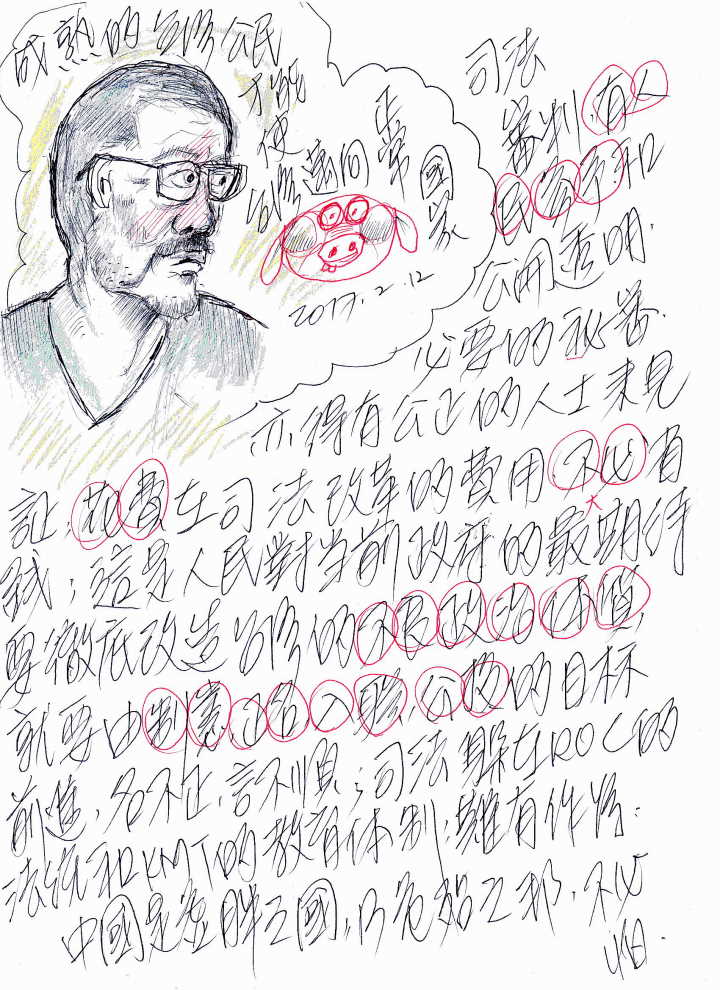 成熟的台灣公民
才能
使
台灣邁向
正常
國家
2017.2.12
司法
審判,有人
民參予和
公開透明.
必要的秘密.
亦得有公正的人士來見
証,花費在司法改革的費用不必省
錢;這是人民對當前政府的最期待
要徹底改造台灣的不良政治体質,
就要由制憲正名入聯公投的目标
前進,名不正,言不順;司法躲在ROC的
法統和KMT的教育体制,難有作為.
中國是虛胖之國,乃危殆之邦,不必
怕.